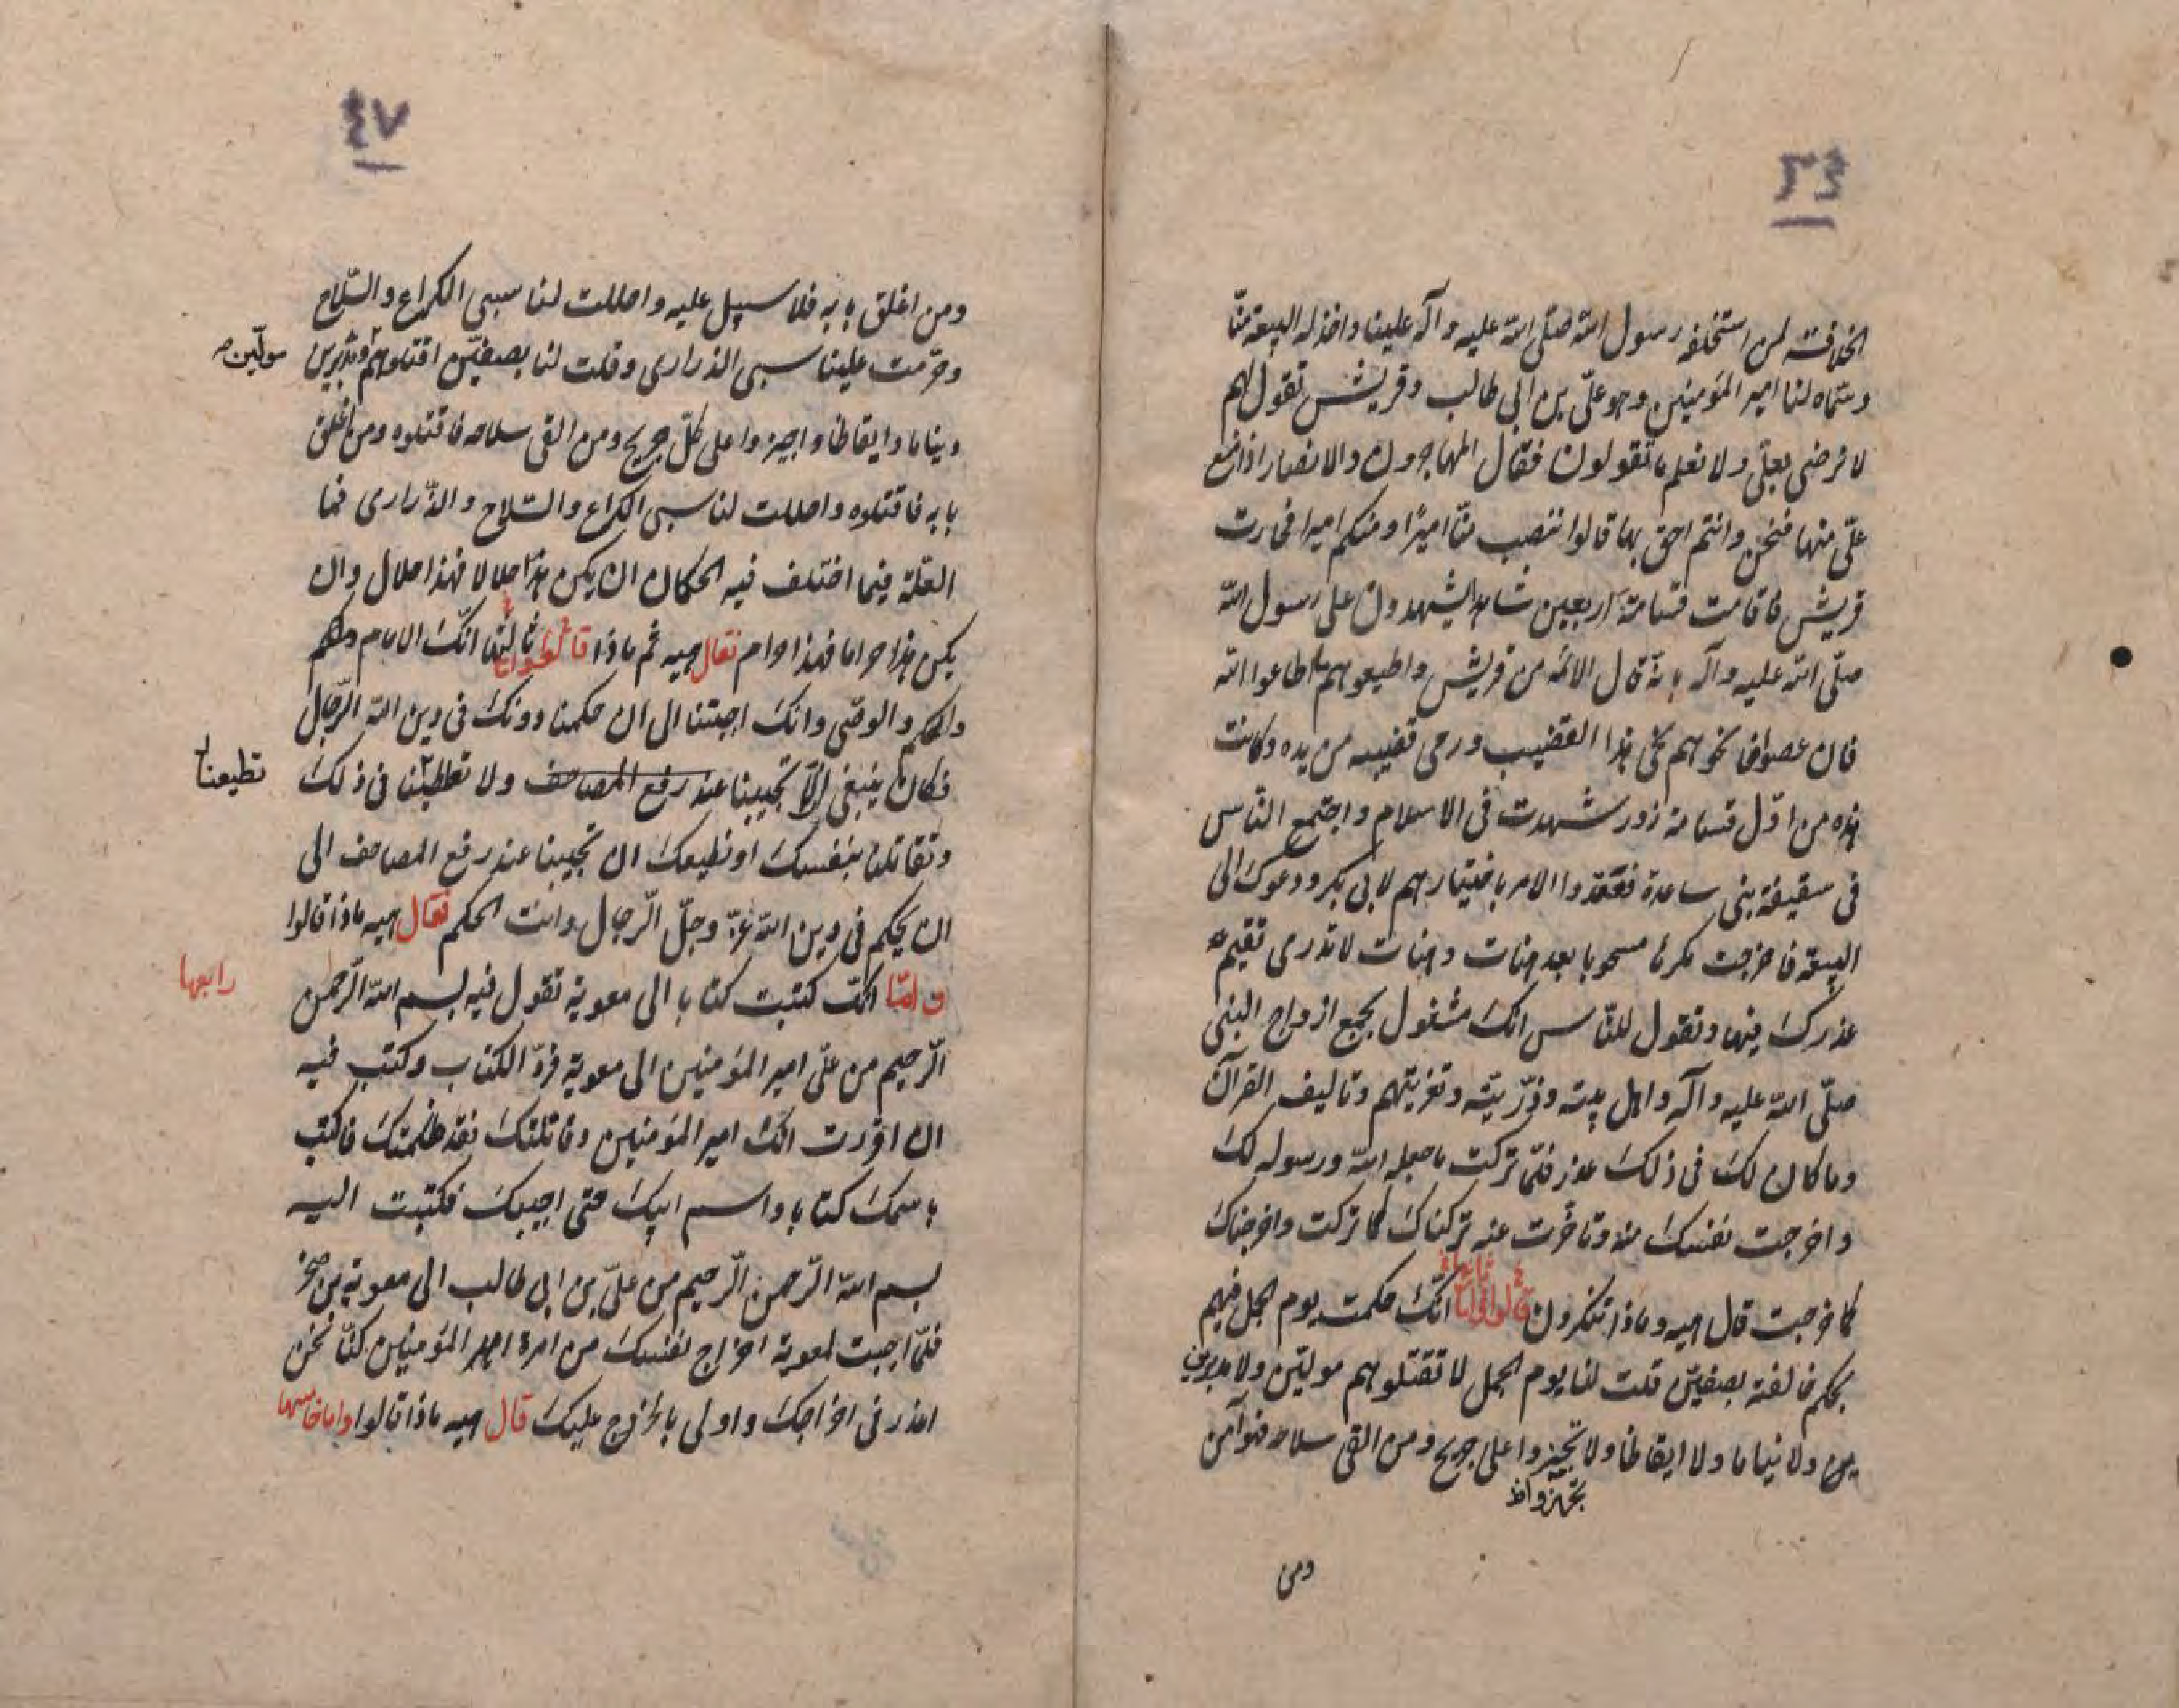 ٤٦
الخلافة لمن استخلفه رسول الله صلّى الله عليه وآله علينا واخذ له البيعة منّا
وسمّاه لنا امير المؤمنين وهو علىّ بن ابى طالب وقريش تقول لهم
لا نرضى بعلىّ ولا نعلم ما تقولون فقال المهاجرون والانصار اذا منع
علىّ منها فنحن وانتم احق بها قالوا ننصب منّا اميرًا ومنكم اميرا فجارت
قريش فاقامت قسامة اربعين شاهدا يشهدون على رسول الله
صلّى الله عليه وآله بانّه قال الائمه من قريش واطيعوهم ما اطاعوا الله
فان عصوا فالحوهم لحى هذا القضيب ورمى قضيبه من يده وكانت
هذه من اوّل قسامة زور شهدت فى الاسلام واجتمع النّاس
فى سقيفة بنى ساعدة فعقدوا الامر باختيارهم لابى بكر ودعوك الى
البيعة فاخرجت مكرها مسحوبا بعد هنات وهنات لا تدرى تقيم
عذرك فيها وتقول للنّاس انّك مشغول بجمع ازواج النبى
صلّى الله عليه وآله واهل بيته وذرّيته وتعزيتهم وتاليف القرآن
وما كان لك فى ذلك عذر فلمّا تركت ما جعله الله ورسوله لك
واخرجت نفسك منه وتاخّرت عنه تركناك كما تركت واخرجناك
كما خرجت قال هيه وماذا تنكرون قالوا وامّا ثانيها انّك حكمت يوم الجمل فيهم
بحكم خالفته بصفيّن قلت لنا يوم الجمل لا تقتلوهم مولّين ولا مدبرين
ولا نياما ولا ايقاظا ولا تجيزوا على جريح ومن القى سلاحه فهو آمن
تجهزوا
ومن
٤٧
ومن اغلق بابه فلا سبيل عليه واحللت لنا سبى الكراع والسّلاح
وحرّمت علينا سبى الذرارى وقلت لنا بصفيّن اقتلوهم ومدبرين
مولّين
ونياما وايقاظا واجيزوا على كلّ جريح ومن القى سلاحه فاقتلوه ومن اغلق
بابه فاقتلوه واحللت لنا سبى الكراع والسّلاح والذّرارى فما
العلّة فيما اختلف فيه الحكمان ان يكن هذا حلالا فهذا حلال وان
يكن هذا حراما فهذا حرام فقال هيه ثم ماذا قالوا وامّا ثالثها انّك الامام
والحكم والوصّى وانّك اجبتنا الى ان حكمنا دونك فى دين الله الرّجال
فكان ينبغى لك الّا تجيبنا عند رفع المصاحف ولا تطيعنا فى ذلك
تطيعنا
وتقاتلنا بنفسك او نطيعك ان تجيبنا عند رفع المصاحف الى
ان يحكم فى دين الله عزّ وجلّ الرّجال وانت الحكم فقال هيه ماذا قالوا
وامّا انّك كتبت كتابا الى معوية تقول فيه بسم الله الرّحمن
رابعها
الرّحيم من علىّ امير المؤمنين الى معوية فردّ الكتاب وكتب فيه
ان اقررت انّك امير المؤمنين وقاتلتك فقد ظلمتك فاكتب
باسمك كتابا واسم ابيك حتى اجيبك فكتبت اليه
بسم الله الرّحمن الرّحيم من علىّ بن ابى طالب الى معوية بن صخر
فلمّا اجبت لمعوية اخراج نفسك من امرة امير المؤمنين كنّا نحن
اعذر فى اخراجك واولى بالخروج عليك قال هيه ماذا قالوا واما خامسها